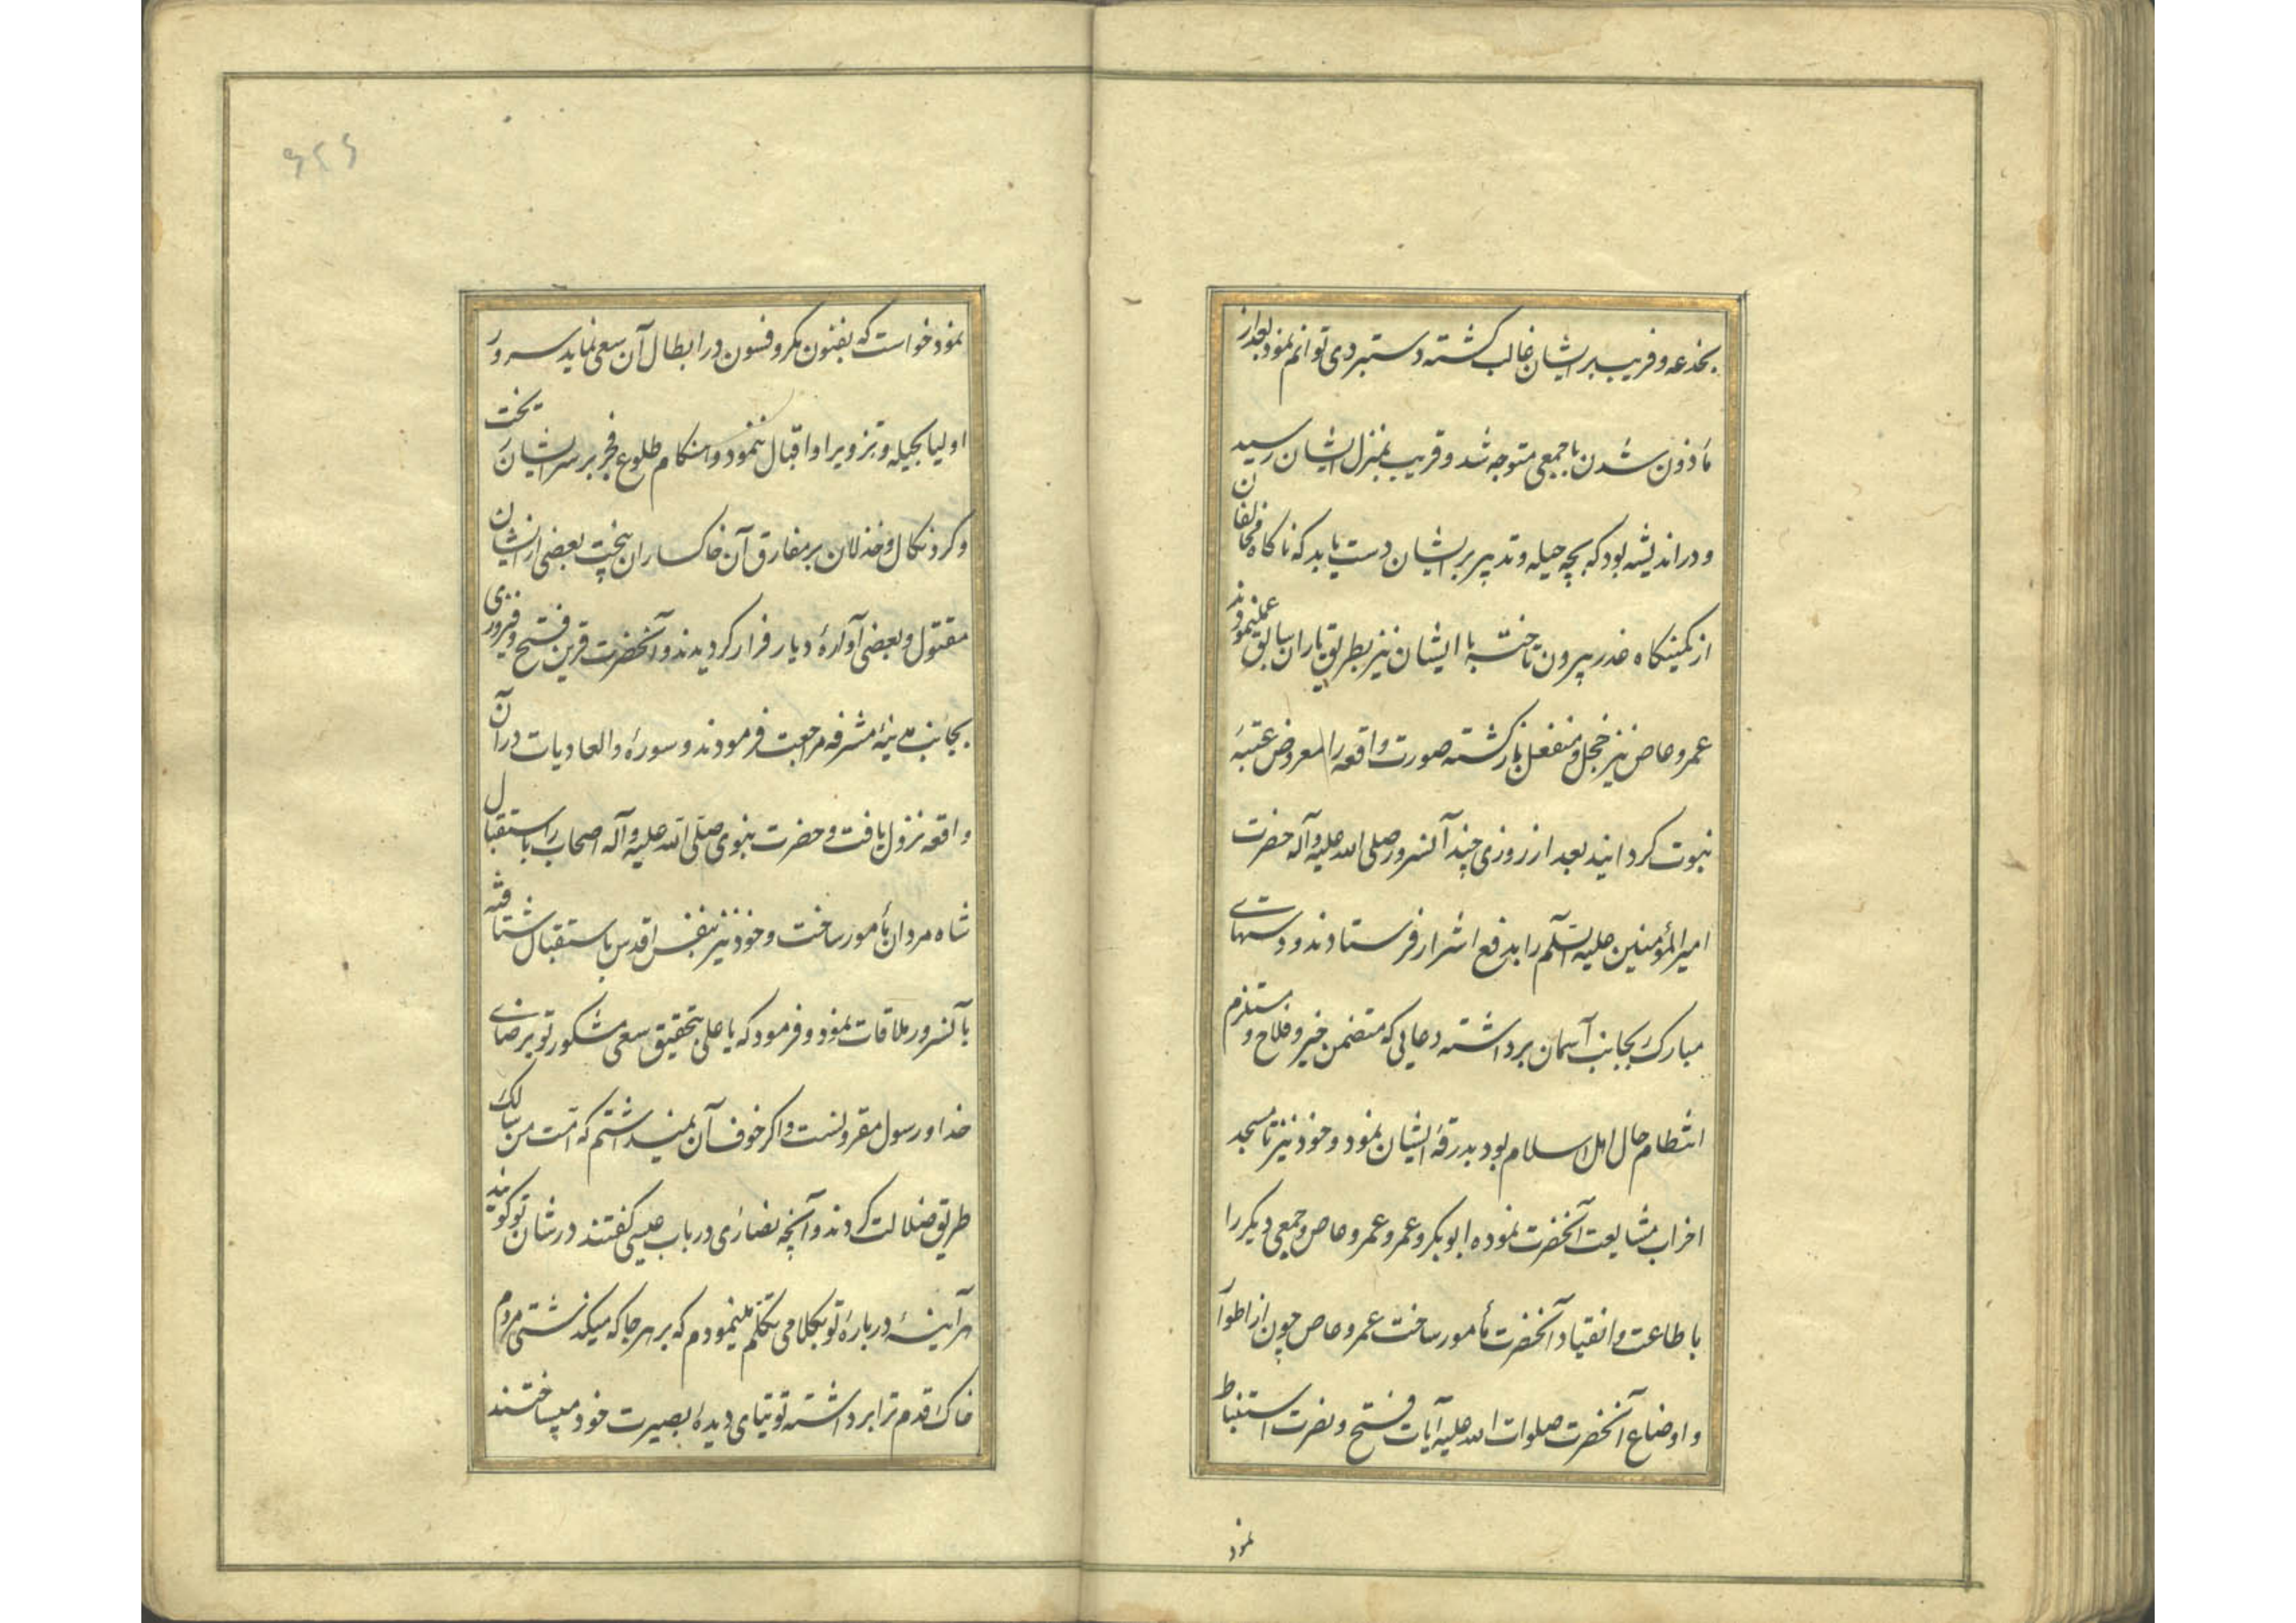 بخدعه و فریب بر ایشان غالب گشته دستبردی توانم نمود بعد از
مأذون شدن با جمعی متوجه شد و قریب بمنزل ایشان رسید
و در اندیشه بود که بچه حیله و تدبیر بر ایشان دست یابد که ناکاه مخالفان
از کمینکاه غدر بیرون تاخته با ایشان نیز بطریق یاران سابق عمل نمودند
عمرو عاص نیز خجل و منفعل بازگشته صورت واقعه را معروض عتبهٔ
نبوت کردانید بعد از روزی چند آنسرور صلی الله علیه و آله حضرت
امیر المؤمنین علیه السلم را بدفع اشرار فرستادند و دستهای
مبارک بجانب آسمان برداشته دعایی که متضمن خیر و فلاح و مستلزم
انتظام حال اهل اسلام بود بدرقهٔ ایشان نمود و خود نیز تا مسجد
احزاب مشایعت آنحضرت نموده ابوبکر و عمر و عمرو عاص و جمعی دیکر را
باطاعت و انقیاد آنحضرت مأمور ساخت عمرو عاص چون از اطوار
و اوضاع آنحضرت صلوات الله علیه آیات فتح و نصرت استنباط
نمود
۶۲۶
نمود خواست که بفنون مکر و فسون در ابطال آن سعی نماید سرور
اولیا بحیله و تزویر او اقبال ننمود و هنکام طلوع فجر بر سر ایشان ریخت
و کرد نکال و خذلان بر مفارق آن خاکساران بیخت بعضی از ایشان
مقتول و بعضی آوارهٔ دیار فرار کردیدند و آنحضرت قرین فتح و فیروزی
بجانب مدینهٔ مشرفه مراجعت فرمودند و سورهٔ والعادیات در آن
واقعه نزول یافت و حضرت نبوی صلی الله علیه و آله اصحاب را باستقبال
شاه مردان مأمور ساخت و خود نیز بنفس اقدس باستقبال شتافته
با آنسرور ملاقات نمود و فرمود که یا علی بتحقیق سعی مشکور تو برضای
خدا و رسول مقرونست و اکر خوف آن نمیداشتم که امت من سالک
طریق ضلالت کردند و آنچه نصاری در باب عیسی گفتند در شان تو کویند
هر آینه دربارهٔ تو بکلامی تکلم مینمودم که بر هر جا که میکذشتی مردم
خاک قدم ترا برداشته توتیای دیدهٔ بصیرت خود میساختند